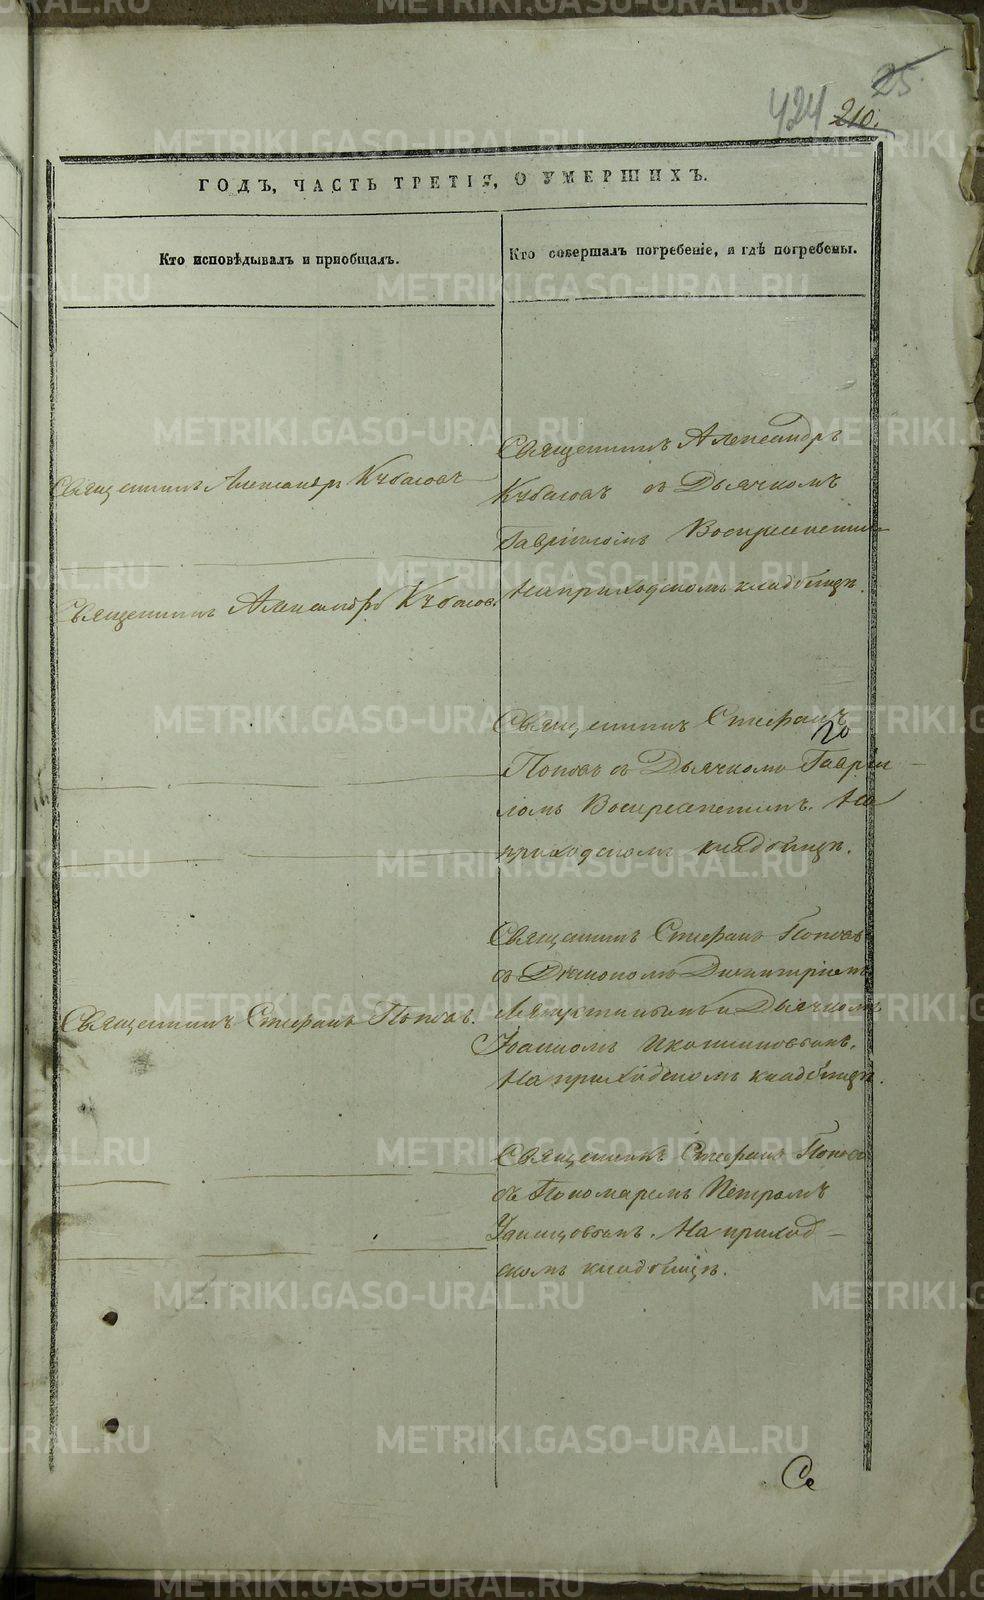 25.
424 210.
ГОДЪ, ЧАСТЬ ТРЕТІЯ, О УМЕРШИХЪ.
Кто исповѣдывалъ и пріобщалъ.
Кто совершалъ погребеніе, и гдѣ погребены.
Священникъ Александръ Кубасовъ
Священникъ Александръ Кубасовъ
Священникъ Стефанъ Поповъ.
Священникъ Александръ
Кубасовъ съ Дьячкомъ
Гавріиломъ Воскресенским
На приходскомъ кладбищѣ.
Священникъ Стефанъ
Поповъ съ Дьячкомъ Гаврііломъ
Воскресенскимъ. На
приходскомъ кладбищѣ.
Священникъ Стефанъ Поповъ
съ Діакономъ Димитріемъ
и Дьячкомъ
Іоанномъ
На приходскомъ кладбищѣ.
Священникъ Стефанъ Поповъ
съ Пономаремъ Петромъ
Удинцовымъ. На приход-
скомъ кладбищѣ.
Се
METRIKI.GASO-URAL.RU